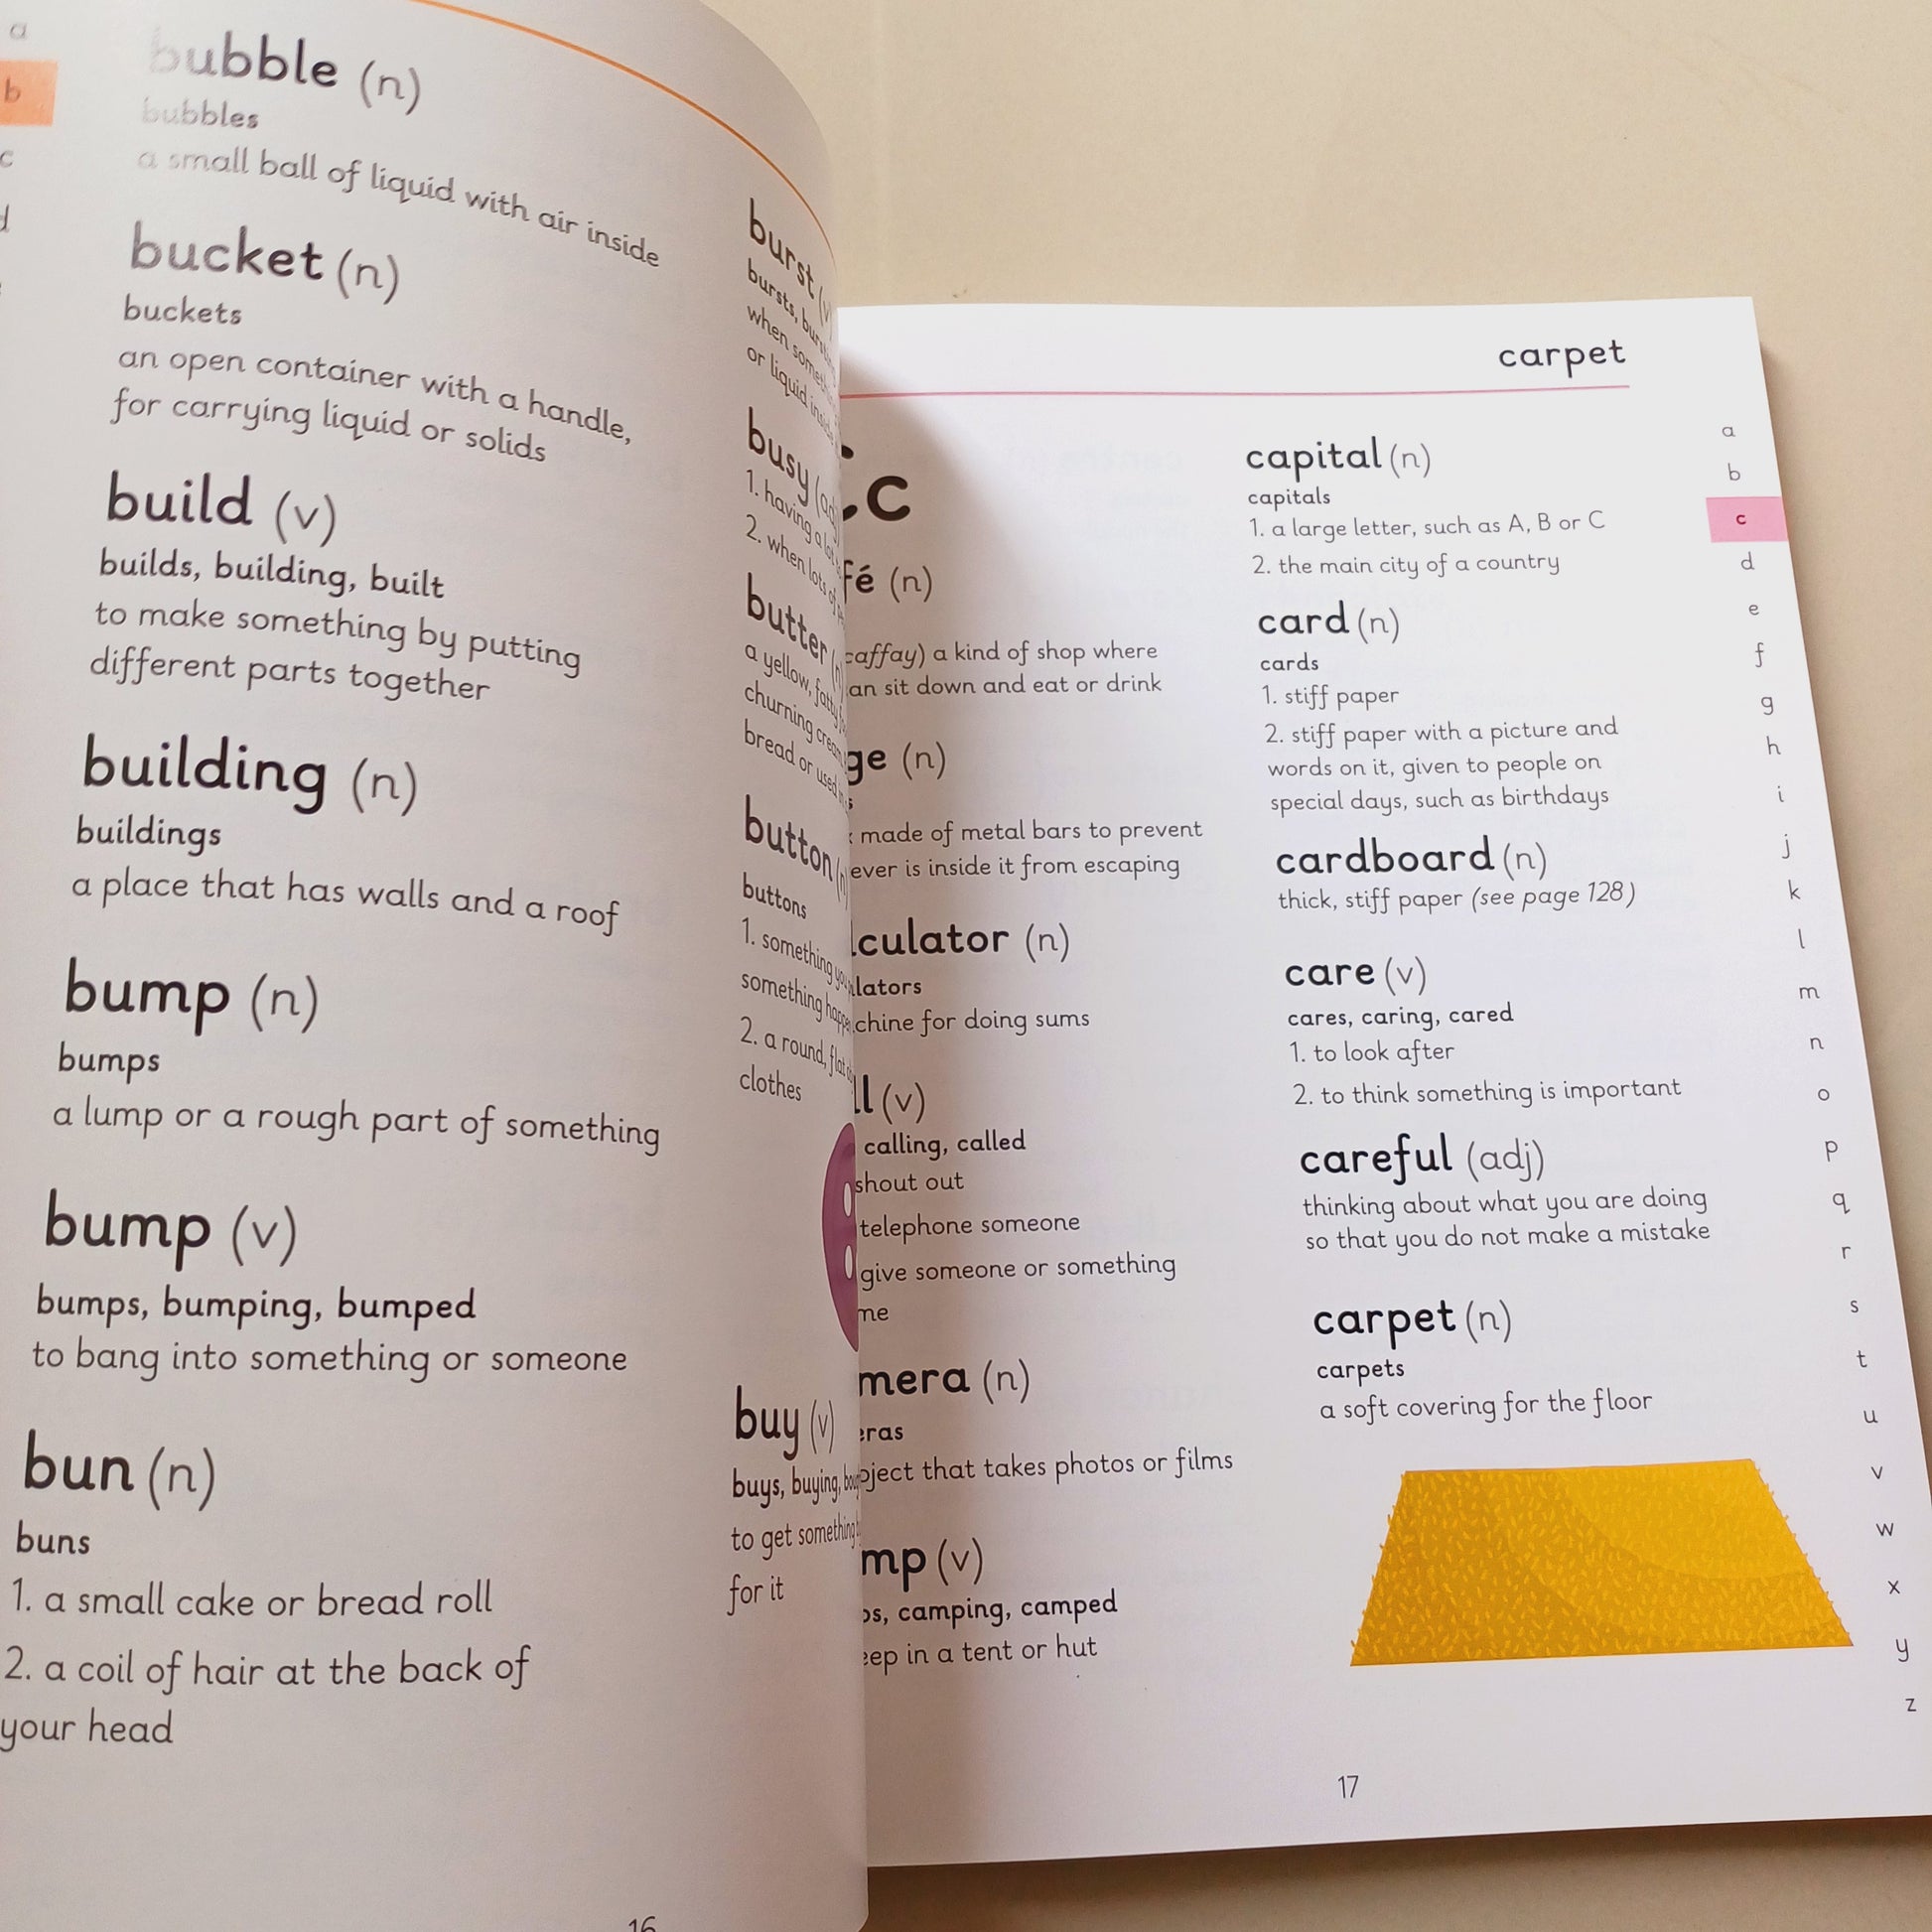 a
b
c
d
bubble (n)
bubbles
a small ball of liquid with air inside
bucket (n)
buckets
an open container with a handle,
for carrying liquid or solids
build (v)
builds, building, built
to make something by putting
different parts together
building (n)
buildings
a place that has walls and a roof
bump (n)
bumps
a lump or a rough part of something
bump (v)
bumps, bumping, bumped
to bang into something or someone
bun (n)
buns
1. a small cake or bread roll
2. a coil of hair at the back of
your head
burst (v
bursts,
when
or liquid inside
busy (adj
1. having a lot
2. when lots of
butter (n
a yellow, fatty
churning cream
bread or used
button (n
buttons
1. something you
something
2. a round, flat
clothes
buy (v)
buys, buying,
to get something
for it
16
carpet
c
(n)
caffay) a kind of shop where
sit down and eat or drink
(n)
made of metal bars to prevent
is inside it from escaping
(n)
for doing sums
(v)
calling, called
shout out
telephone someone
give someone or something
(n)
that takes photos or films
(v)
camping, camped
in a tent or hut
capital (n)
capitals
1. a large letter, such as A, B or C
2. the main city of a country
card (n)
cards
1. stiff paper
2. stiff paper with a picture and
words on it, given to people on
special days, such as birthdays
cardboard (n)
thick, stiff paper (see page 128)
care (v)
cares, caring, cared
1. to look after
2. to think something is important
careful (adj)
thinking about what you are doing
so that you do not make a mistake
carpet (n)
carpets
a soft covering for the floor
17
a
b
c
d
e
f
g
h
i
j
k
l
m
n
o
p
q
r
s
t
u
v
w
x
y
z